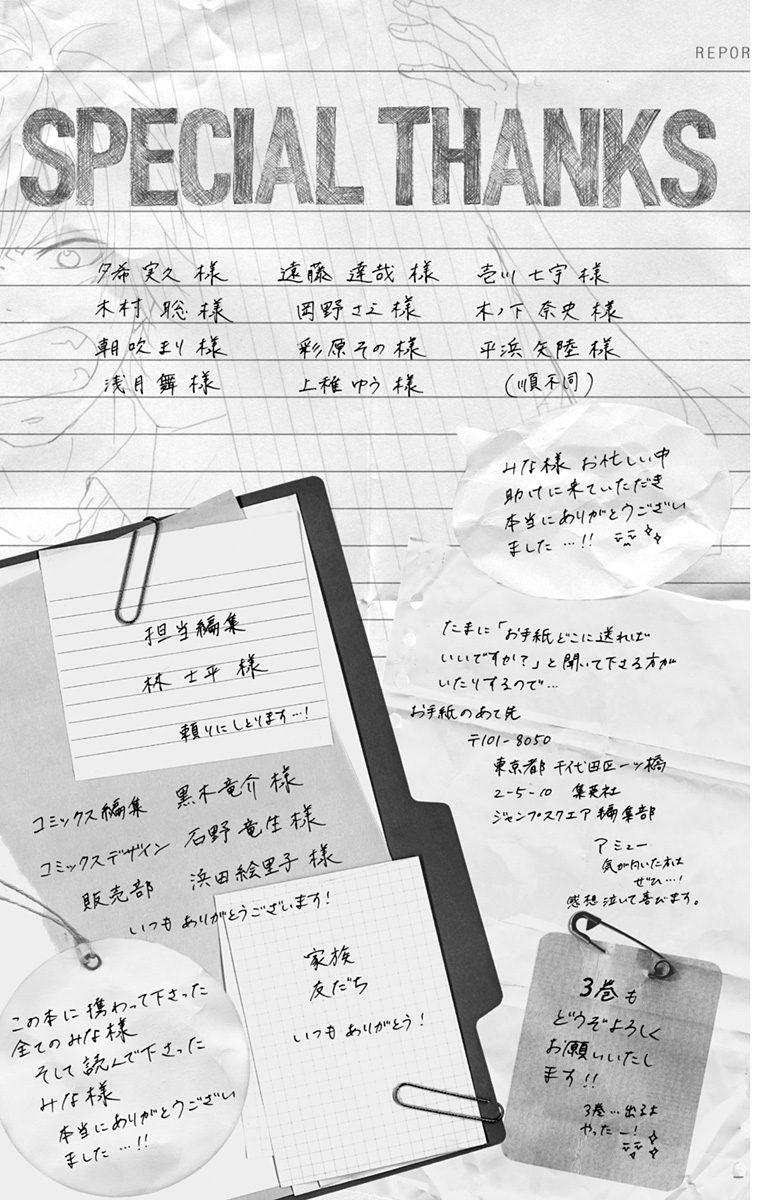 REPOR
SPECIAL THANKS
夕希 実久 様　遠藤 達哉 様　壱川 七宇 様
木村 聡 様　岡野 さえ 様　木ノ下 奈史 様
朝吹 まり 様　彩原 その 様　平浜 矢陸 様
浅月 舞 様　上稚 ゆう 様　（順不同）
みな様 お忙しい中
助けに来ていただき
本当にありがとうござい
ました…!!
担当編集
林 士平 様
頼りにしとります…!
コミックス編集　黒木竜介 様
コミックスデザイン　石野竜生 様
販売部　浜田絵里子 様
いつも ありがとうございます!
たまに「お手紙どこに送れば
いいですか?」と聞いて下さる方が
いたりするので…
お手紙のあて先
〒101-8050
東京都 千代田区一ッ橋
2-5-10　集英社
ジャンプスクエア編集部
アミュー
気が向いた方は
ぜひ…!
感想泣いて喜びます。
家族
友だち
いつも ありがとう!
この本に携わって下さった
全てのみな様
そして 読んで下さった
みな様
本当に ありがとうござい
ました…!!
3巻も
どうぞよろしく
お願いいたし
ます!!
3巻…出るよ
やったー!